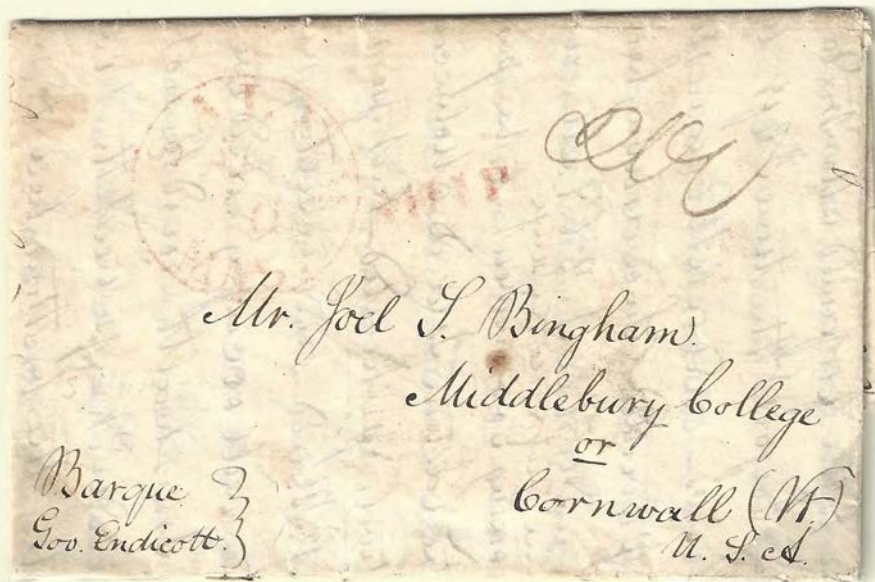 SHIP
Mr. Joel S. Bingham.
Middlebury College
or
Cornwall (Vt.)
U. S. A.
Barque
Gov. Endicott.